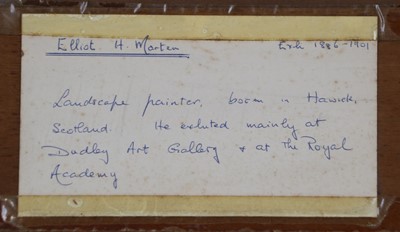 Elliot H. Marten Exh 1886-1901
Landscape painter, born in Hawick,
Scotland. He exhuted mainly at
Dudley Art Gallery & at The Royal
Academy